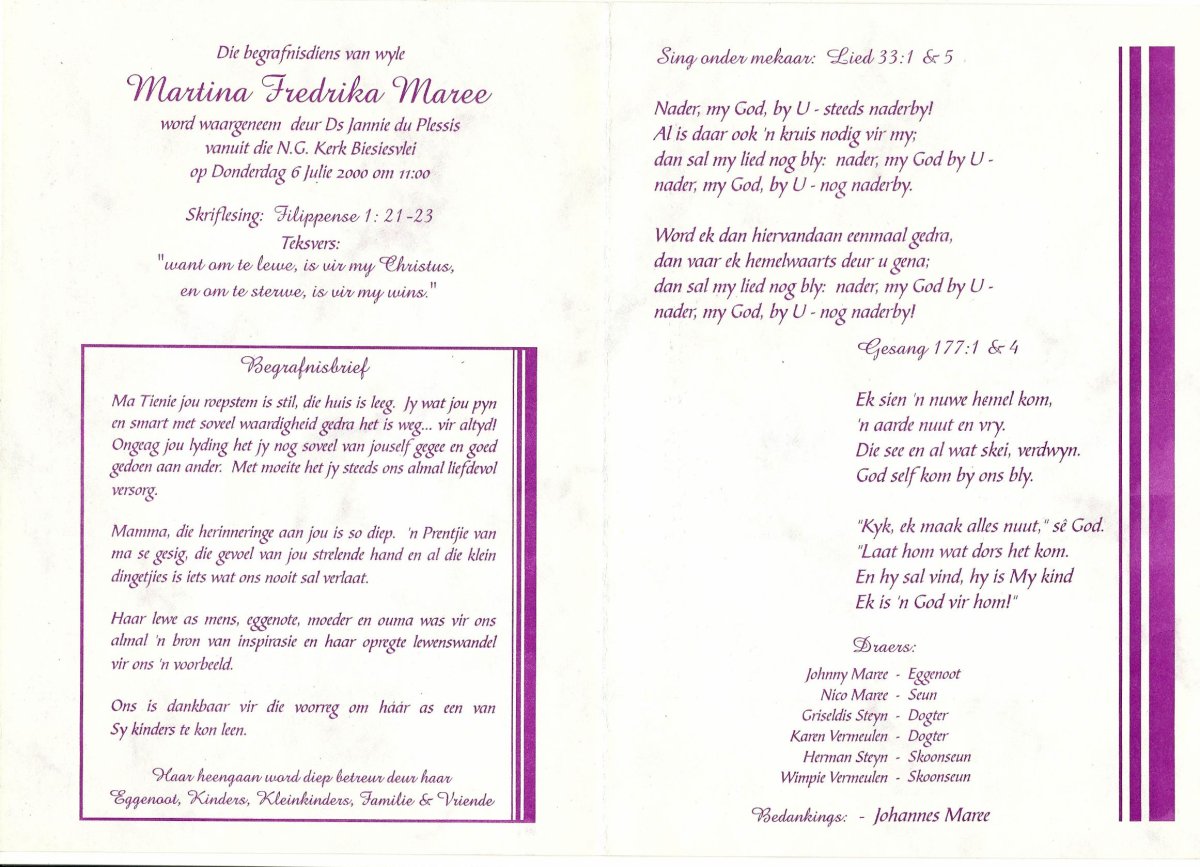 Die begrafnisdiens van wyle
Martina Fredrika Maree
word waargeneem deur Ds Jannie du Plessis
vanuit die N.G. Kerk Biesiesvlei
op Donderdag 6 Julie 2000 om 11:00
Skriflesing: Filippense 1: 21-23
Teksvers:
"want om te lewe, is vir my Christus,
en om te sterwe, is vir my wins."
Begrafnisbrief
Ma Tienie jou roepstem is stil, die huis is leeg. Jy wat jou pyn
en smart met soveel waardigheid gedra het is weg... vir altyd!
Ongeag jou lyding het jy nog soveel van jouself gegee en goed
gedoen aan ander. Met moeite het jy steeds ons almal liefdevol
versorg.
Mamma, die herinneringe aan jou is so diep. 'n Prentjie van
ma se gesig, die gevoel van jou strelende hand en al die klein
dingetjies is iets wat ons nooit sal verlaat.
Haar lewe as mens, eggenote, moeder en ouma was vir ons
almal 'n bron van inspirasie en haar opregte lewenswandel
vir ons 'n voorbeeld.
Ons is dankbaar vir die voorreg om háár as een van
Sy kinders te kon leen.
Haar heengaan word diep betreur deur haar
Eggenoot, Kinders, Kleinkinders, Familie & Vriende
Sing onder mekaar: Lied 33:1 & 5
Nader, my God, by U - steeds naderby!
Al is daar ook 'n kruis nodig vir my;
dan sal my lied nog bly: nader, my God by U -
nader, my God, by U - nog naderby.
Word ek dan hiervandaan eenmaal gedra,
dan vaar ek hemelwaarts deur u gena;
dan sal my lied nog bly: nader, my God by U -
nader, my God, by U - nog naderby!
Gesang 177:1 & 4
Ek sien 'n nuwe hemel kom,
'n aarde nuut en vry.
Die see en al wat skei, verdwyn.
God self kom by ons bly.
"Kyk, ek maak alles nuut," sê God.
"Laat hom wat dors het kom.
En hy sal vind, hy is My kind
Ek is 'n God vir hom!"
Draers:
Johnny Maree - Eggenoot
Nico Maree - Seun
Griseldis Steyn - Dogter
Karen Vermeulen - Dogter
Herman Steyn - Skoonseun
Wimpie Vermeulen - Skoonseun
Bedankings: - Johannes Maree